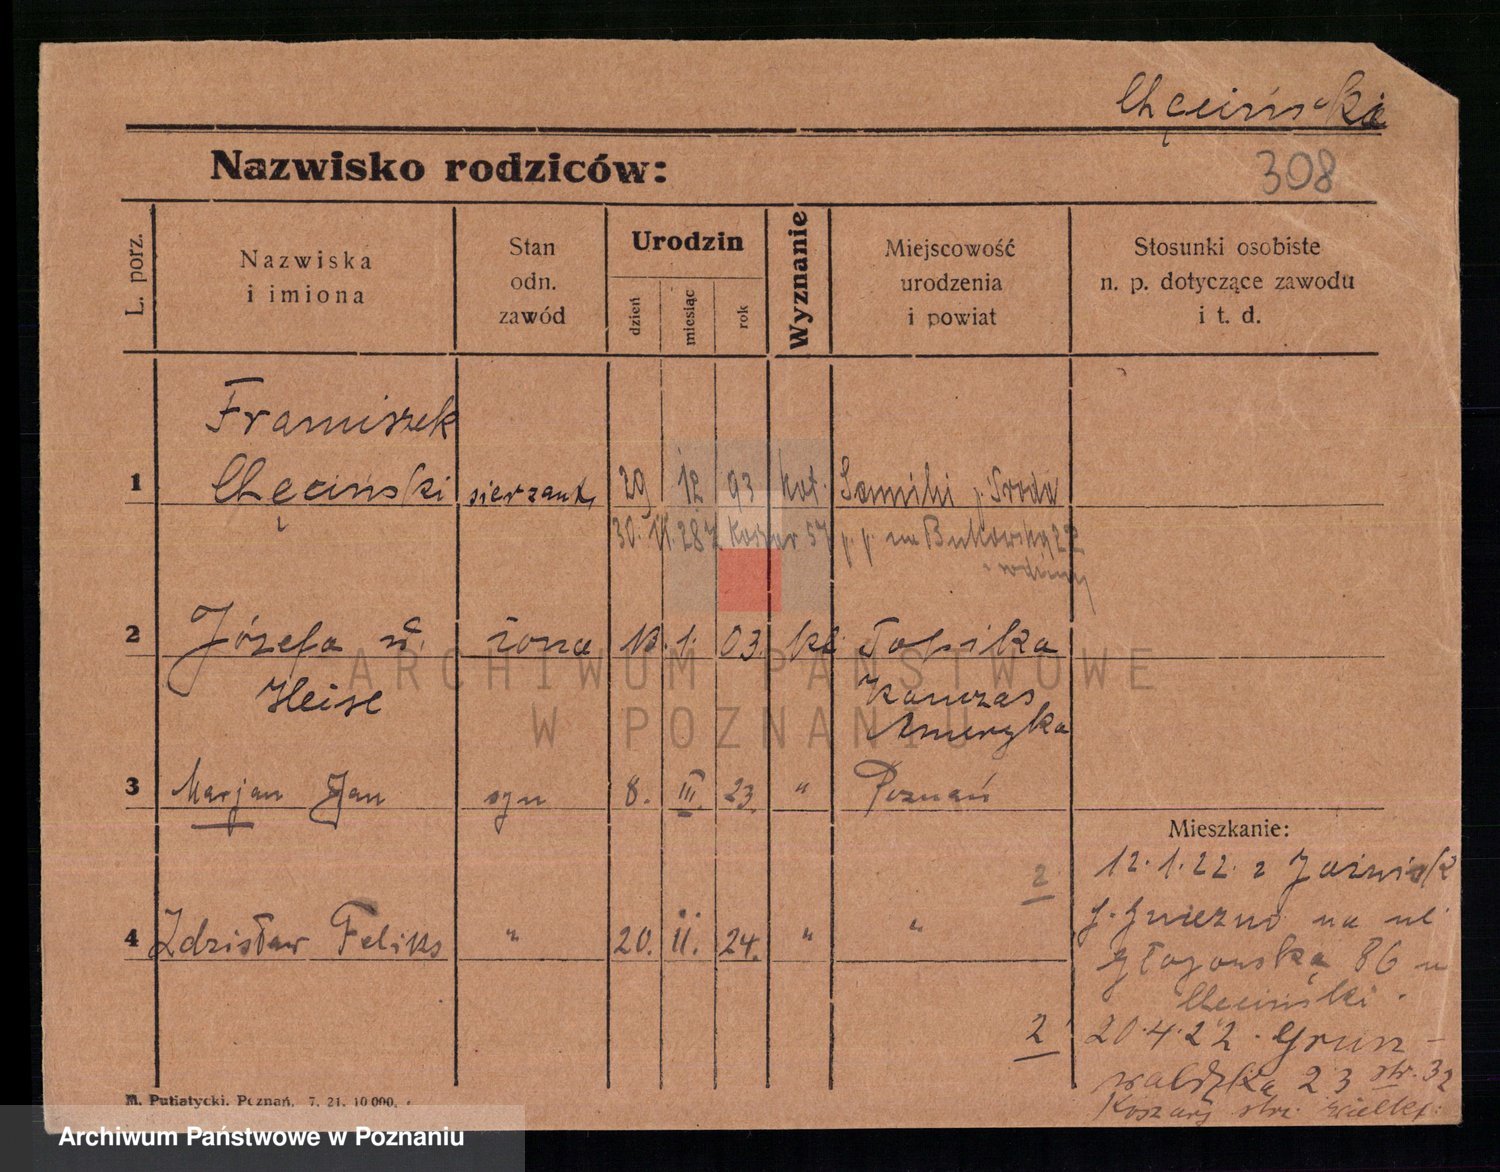 Chęciński
Nazwisko rodziców:
308
L. porz.
Nazwiska
i imiona
Stan
odn.
zawód
Urodzin
dzień
miesiąc
rok
Wyznanie
Miejscowość
urodzenia
i powiat
Stosunki osobiste
n. p. dotyczące zawodu
i t. d.
Franciszek
1 Chęciński sierżant 29 12 93 kat. Sanniki p. Środa
30. 11. 28 z Koszar 57 p. p. na Bukowską 22
z rodziny
2 Józefa u. żona 13. 1. 03. kt. Topika
Heise Kanzas
Ameryka
3 Marjan Jan syn 8. III. 23. " Poznań
Mieszkanie:
2 12.1.22. z
4 Zdzisław Feliks " 20. II. 24. " "
p. Gniezno na ul
Głogowską 86 u
Chęciński.
2 20.4.22. Grun-
waldzką 23 str. 32
Koszary str.
M. Putiatycki. Poznań. 7. 21. 10 000.
ARCHIWUM PAŃSTWOWE
W POZNANIU
Archiwum Państwowe w Poznaniu